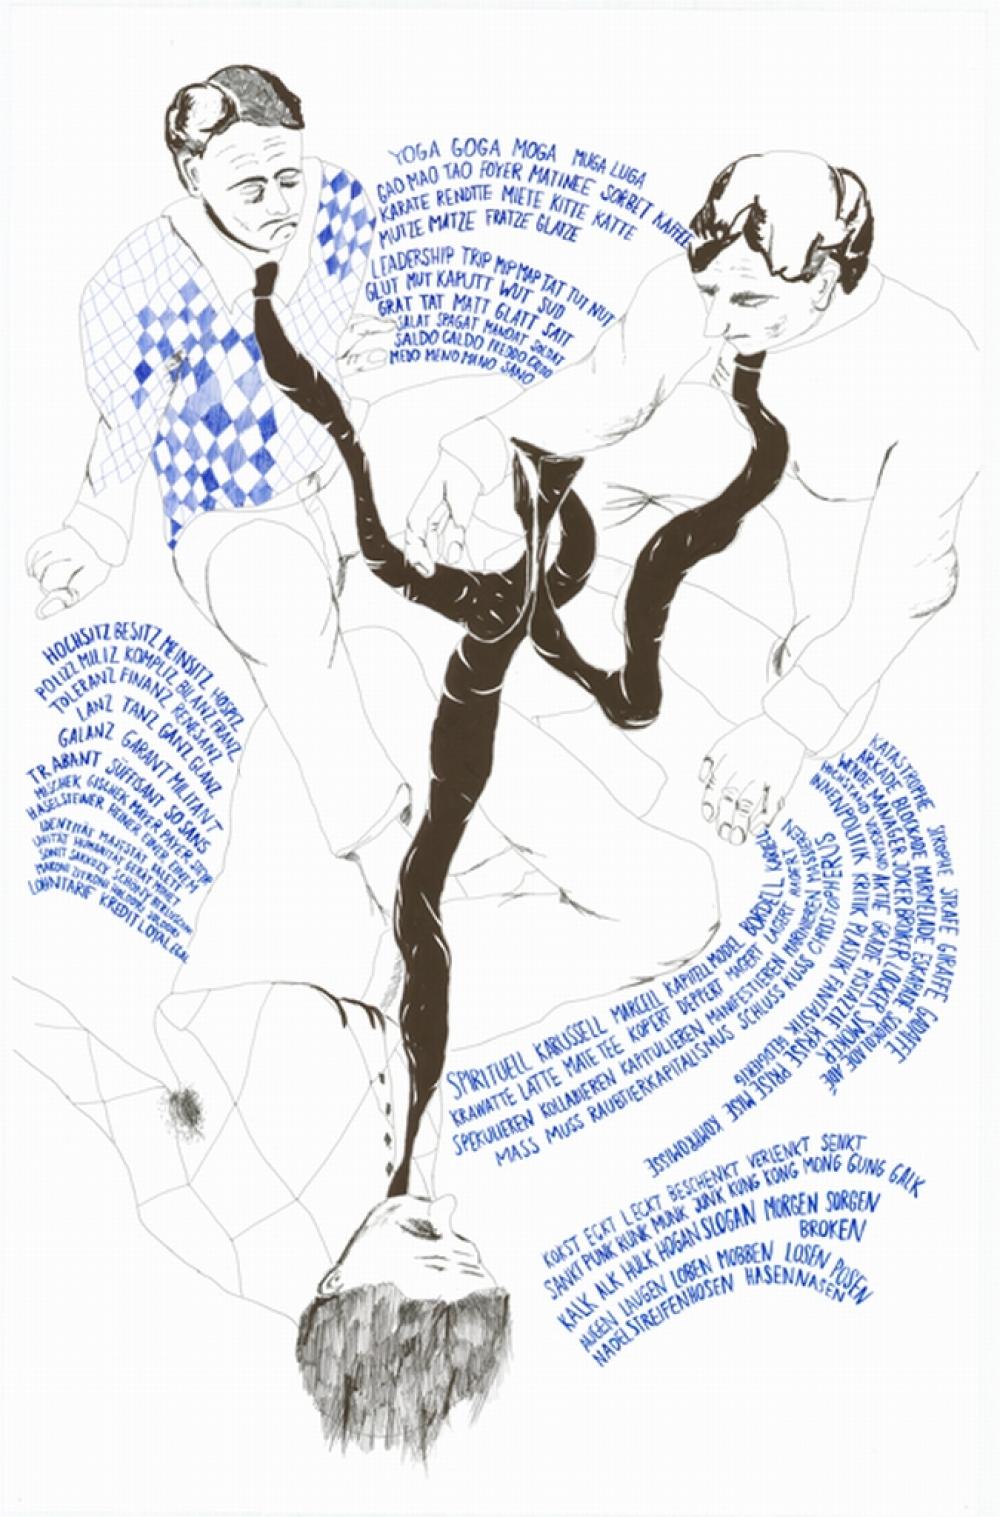 YOGA GOGA MOGA MUGA LUGA
GAO MAO TAO FOYER MATINEE SORBET KAFFEE
KARATE RENDITE MIETE KITTE KATTE
MUTZE MATZE FRATZE GLATZE
LEADERSHIP TRIP MIP MAP TAT TUT NUT
GLUT MUT KAPUTT WUT SUD
GRAT TAT MATT GLATT SATT
SALAT SPAGAT MANDAT SOLDAT
SALDO CALDO FREDDO CREDO
MEDO MENO MANO SANO
HOCHSITZ BESITZ MEINSITZ HOSPIZ
POLIZZ MILIZ KOMPLIZ BILANZ FRANZ
TOLERANZ FINANZ RENESANZ
LANZ TANZ GANZ GLANZ
GALANZ GARANT MILITANT
TRABANT SÜFFISANT SO SANS
MISCHEK GISCHEK MAYER PAYER
HASELSTEINER HEINER EINER EINEM
IDENTITÄT MAJESTÄT VALETE
UNITÄT HUMANITÄT GERÄT MONET
SOMIT SARKOZY SCHONY BERLUSCONI
MARONI ZITRONI
LOHNTARIF KREDIT LOYAL EGAL
KATASTROPHE STROPHE STRAFE GIRAFFE GARANTE
ARKADE BLOCKADE MARMELADE ESKAPADE SCHOKOLADE ADE
WENDE MANAGER JOKER BROKER LOCKER SMOKER
HOCHSTAND VERSTAND AKTIE GRAZIE PISTAZZIE KRISE PRISE MISE KOMPROMISSE
INNENPOLITIK KRITIK PLASTIK FANTASTIK GELDGIERIG
SPIRITUELL KARUSSELL MARCELL KAPITELL MODEL BORDELL KARDEL
KRAWATTE LATTE MATE TEE KOPERT DEPPERT MAGERT LAGERT HADERT
SPEKULIEREN KOLLABIEREN KAPITULIEREN MANIFESTIEREN MARINIEREN MASSIEREN
MASS MUSS RAUBTIERKAPITALISMUS SCHLUSS KUSS CHRISTOPHERUS
KORST ECKT LECKT BESCHENKT VERLENKT SENKT
SANKT PUNK RUNK MUNK JUNK KUNG KONG MONG GUNG GALK
KALK ALK HULK HOGAN SLOGAN MORGEN SORGEN
BROKEN
AUGEN LAUGEN LOBEN MOBBEN LOSEN POSEN
NADELSTREIFENHOSEN HASENNASEN